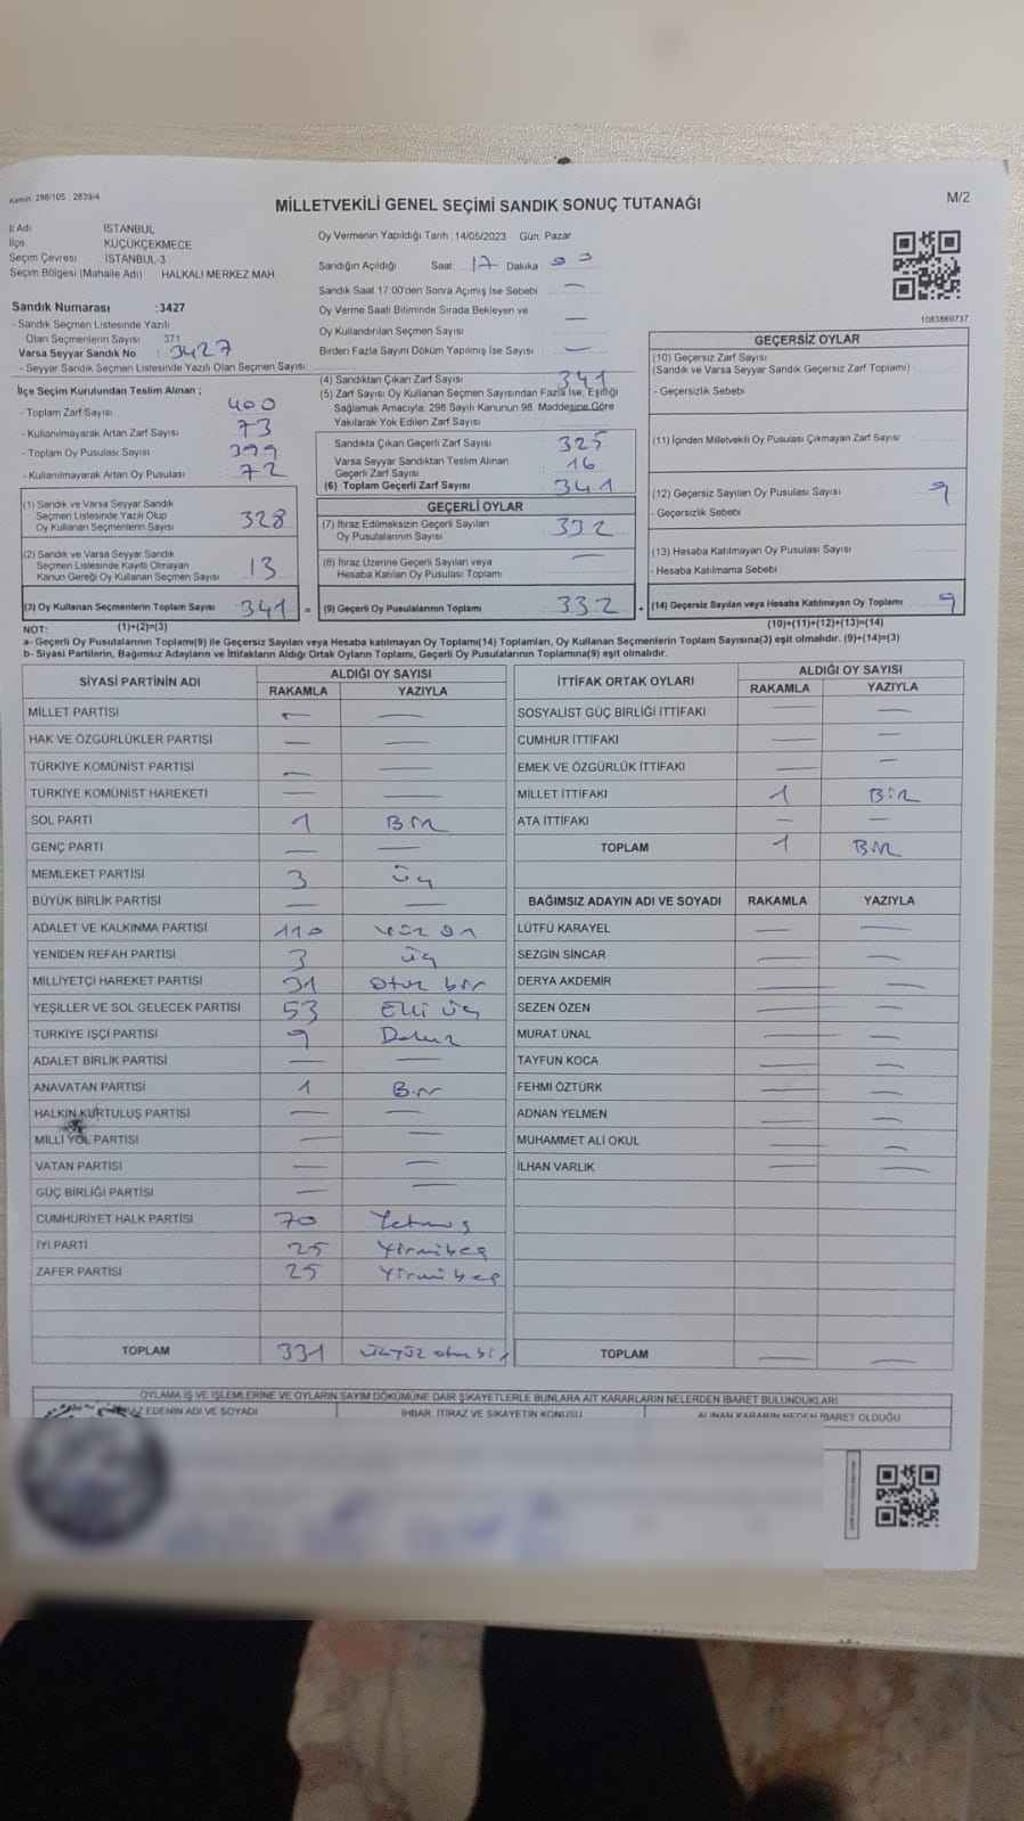 Kanun: 298/105 ; 2839/4
MİLLETVEKİLİ GENEL SEÇİMİ SANDIK SONUÇ TUTANAĞI
M/2
İl Adı İSTANBUL
İlçe KÜÇÜKÇEKMECE
Seçim Çevresi İSTANBUL-3
Seçim Bölgesi (Mahalle Adı) HALKALI MERKEZ MAH.
Sandık Numarası :3427
- Sandık Seçmen Listesinde Yazılı
Olan Seçmenlerin Sayısı 371
Varsa Seyyar Sandık No : 3427
- Seyyar Sandık Seçmen Listesinde Yazılı Olan Seçmen Sayısı
Oy Vermenin Yapıldığı Tarih :14/05/2023 Gün: Pazar
Sandığın Açıldığı Saat 17 Dakika
Sandık Saat 17:00'den Sonra Açılmış İse Sebebi —
Oy Verme Saati Bitiminde Sırada Bekleyen ve
Oy Kullandırılan Seçmen Sayısı —
Birden Fazla Sayım Döküm Yapılmış İse Sayısı —
1083860737
İlçe Seçim Kurulundan Teslim Alınan ;
- Toplam Zarf Sayısı 400
- Kullanılmayarak Artan Zarf Sayısı 73
- Toplam Oy Pusulası Sayısı 399
- Kullanılmayarak Artan Oy Pusulası 72
(1) Sandık ve Varsa Seyyar Sandık
Seçmen Listesinde Yazılı Olup
Oy Kullanan Seçmenlerin Sayısı 328
(2) Sandık ve Varsa Seyyar Sandık
Seçmen Listesinde Kayıtlı Olmayan
Kanun Gereği Oy Kullanan Seçmen Sayısı 13
(3) Oy Kullanan Seçmenlerin Toplam Sayısı 341 =
(4) Sandıktan Çıkan Zarf Sayısı 341
(5) Zarf Sayısı Oy Kullanan Seçmen Sayısından Fazla İse, Eşitliği
Sağlamak Amacıyla; 298 Sayılı Kanunun 98. Maddesine Göre
Yakılarak Yok Edilen Zarf Sayısı
Sandıkta Çıkan Geçerli Zarf Sayısı : 325
Varsa Seyyar Sandıktan Teslim Alınan
Geçerli Zarf Sayısı : 16
(6) Toplam Geçerli Zarf Sayısı : 341
GEÇERLİ OYLAR
(7) İtiraz Edilmeksizin Geçerli Sayılan
Oy Pusulalarının Sayısı 332
(8) İtiraz Üzerine Geçerli Sayılan veya
Hesaba Katılan Oy Pusulası Toplamı —
(9) Geçerli Oy Pusulalarının Toplamı 332 +
GEÇERSİZ OYLAR
(10) Geçersiz Zarf Sayısı
(Sandık ve Varsa Seyyar Sandık Geçersiz Zarf Toplamı)
- Geçersizlik Sebebi
(11) İçinden Milletvekili Oy Pusulası Çıkmayan Zarf Sayısı
(12) Geçersiz Sayılan Oy Pusulası Sayısı 9
- Geçersizlik Sebebi
(13) Hesaba Katılmayan Oy Pusulası Sayısı
- Hesaba Katılmama Sebebi
(14) Geçersiz Sayılan veya Hesaba Katılmayan Oy Toplamı 9
NOT: (1)+(2)=(3) (10)+(11)+(12)+(13)=(14)
a- Geçerli Oy Pusulalarının Toplamı(9) ile Geçersiz Sayılan veya Hesaba katılmayan Oy Toplamı(14) Toplamları, Oy Kullanan Seçmenlerin Toplam Sayısına(3) eşit olmalıdır. (9)+(14)=(3)
b- Siyasi Partilerin, Bağımsız Adayların ve İttifakların Aldığı Ortak Oyların Toplamı, Geçerli Oy Pusulalarının Toplamına(9) eşit olmalıdır.
SİYASİ PARTİNİN ADI ALDIĞI OY SAYISI
RAKAMLA YAZIYLA
MİLLET PARTİSİ — —
HAK VE ÖZGÜRLÜKLER PARTİSİ — —
TÜRKİYE KOMÜNİST PARTİSİ — —
TÜRKİYE KOMÜNİST HAREKETİ — —
SOL PARTİ 1 Bir
GENÇ PARTİ — —
MEMLEKET PARTİSİ 3 Üç
BÜYÜK BİRLİK PARTİSİ — —
ADALET VE KALKINMA PARTİSİ 110 Yüz On
YENİDEN REFAH PARTİSİ 3 üç
MİLLİYETÇİ HAREKET PARTİSİ 31 Otuz bir
YEŞİLLER VE SOL GELECEK PARTİSİ 53 Elli üç
TÜRKİYE İŞÇİ PARTİSİ 9 Dokuz
ADALET BİRLİK PARTİSİ — —
ANAVATAN PARTİSİ 1 Bir
HALKIN KURTULUŞ PARTİSİ — —
MİLLİ YOL PARTİSİ — —
VATAN PARTİSİ — —
GÜÇ BİRLİĞİ PARTİSİ — —
CUMHURİYET HALK PARTİSİ 70 Yetmiş
İYİ PARTİ 25 Yirmibeş
ZAFER PARTİSİ 25 Yirmi beş
TOPLAM 331 üçyüz otuz bir
İTTİFAK ORTAK OYLARI ALDIĞI OY SAYISI
RAKAMLA YAZIYLA
SOSYALİST GÜÇ BİRLİĞİ İTTİFAKI — —
CUMHUR İTTİFAKI — —
EMEK VE ÖZGÜRLÜK İTTİFAKI — —
MİLLET İTTİFAKI 1 Bir
ATA İTTİFAKI — —
TOPLAM 1 Bir
BAĞIMSIZ ADAYIN ADI VE SOYADI RAKAMLA YAZIYLA
LÜTFÜ KARAYEL — —
SEZGİN SİNCAR — —
DERYA AKDEMİR — —
SEZEN ÖZEN — —
MURAT ÜNAL — —
TAYFUN KOCA — —
FEHMİ ÖZTÜRK — —
ADNAN YELMEN — —
MUHAMMET ALİ OKUL — —
İLHAN VARLIK — —
TOPLAM — —
OYLAMA İŞ VE İŞLEMLERİNE VE OYLARIN SAYIM DÖKÜMÜNE DAİR ŞİKAYETLERLE BUNLARA AİT KARARLARIN NELERDEN İBARET BULUNDUKLARI
EDENİN ADI VE SOYADI İHBAR, İTİRAZ VE ŞİKAYETİN KONUSU ALINAN KARARIN NEDEN İBARET OLDUĞU